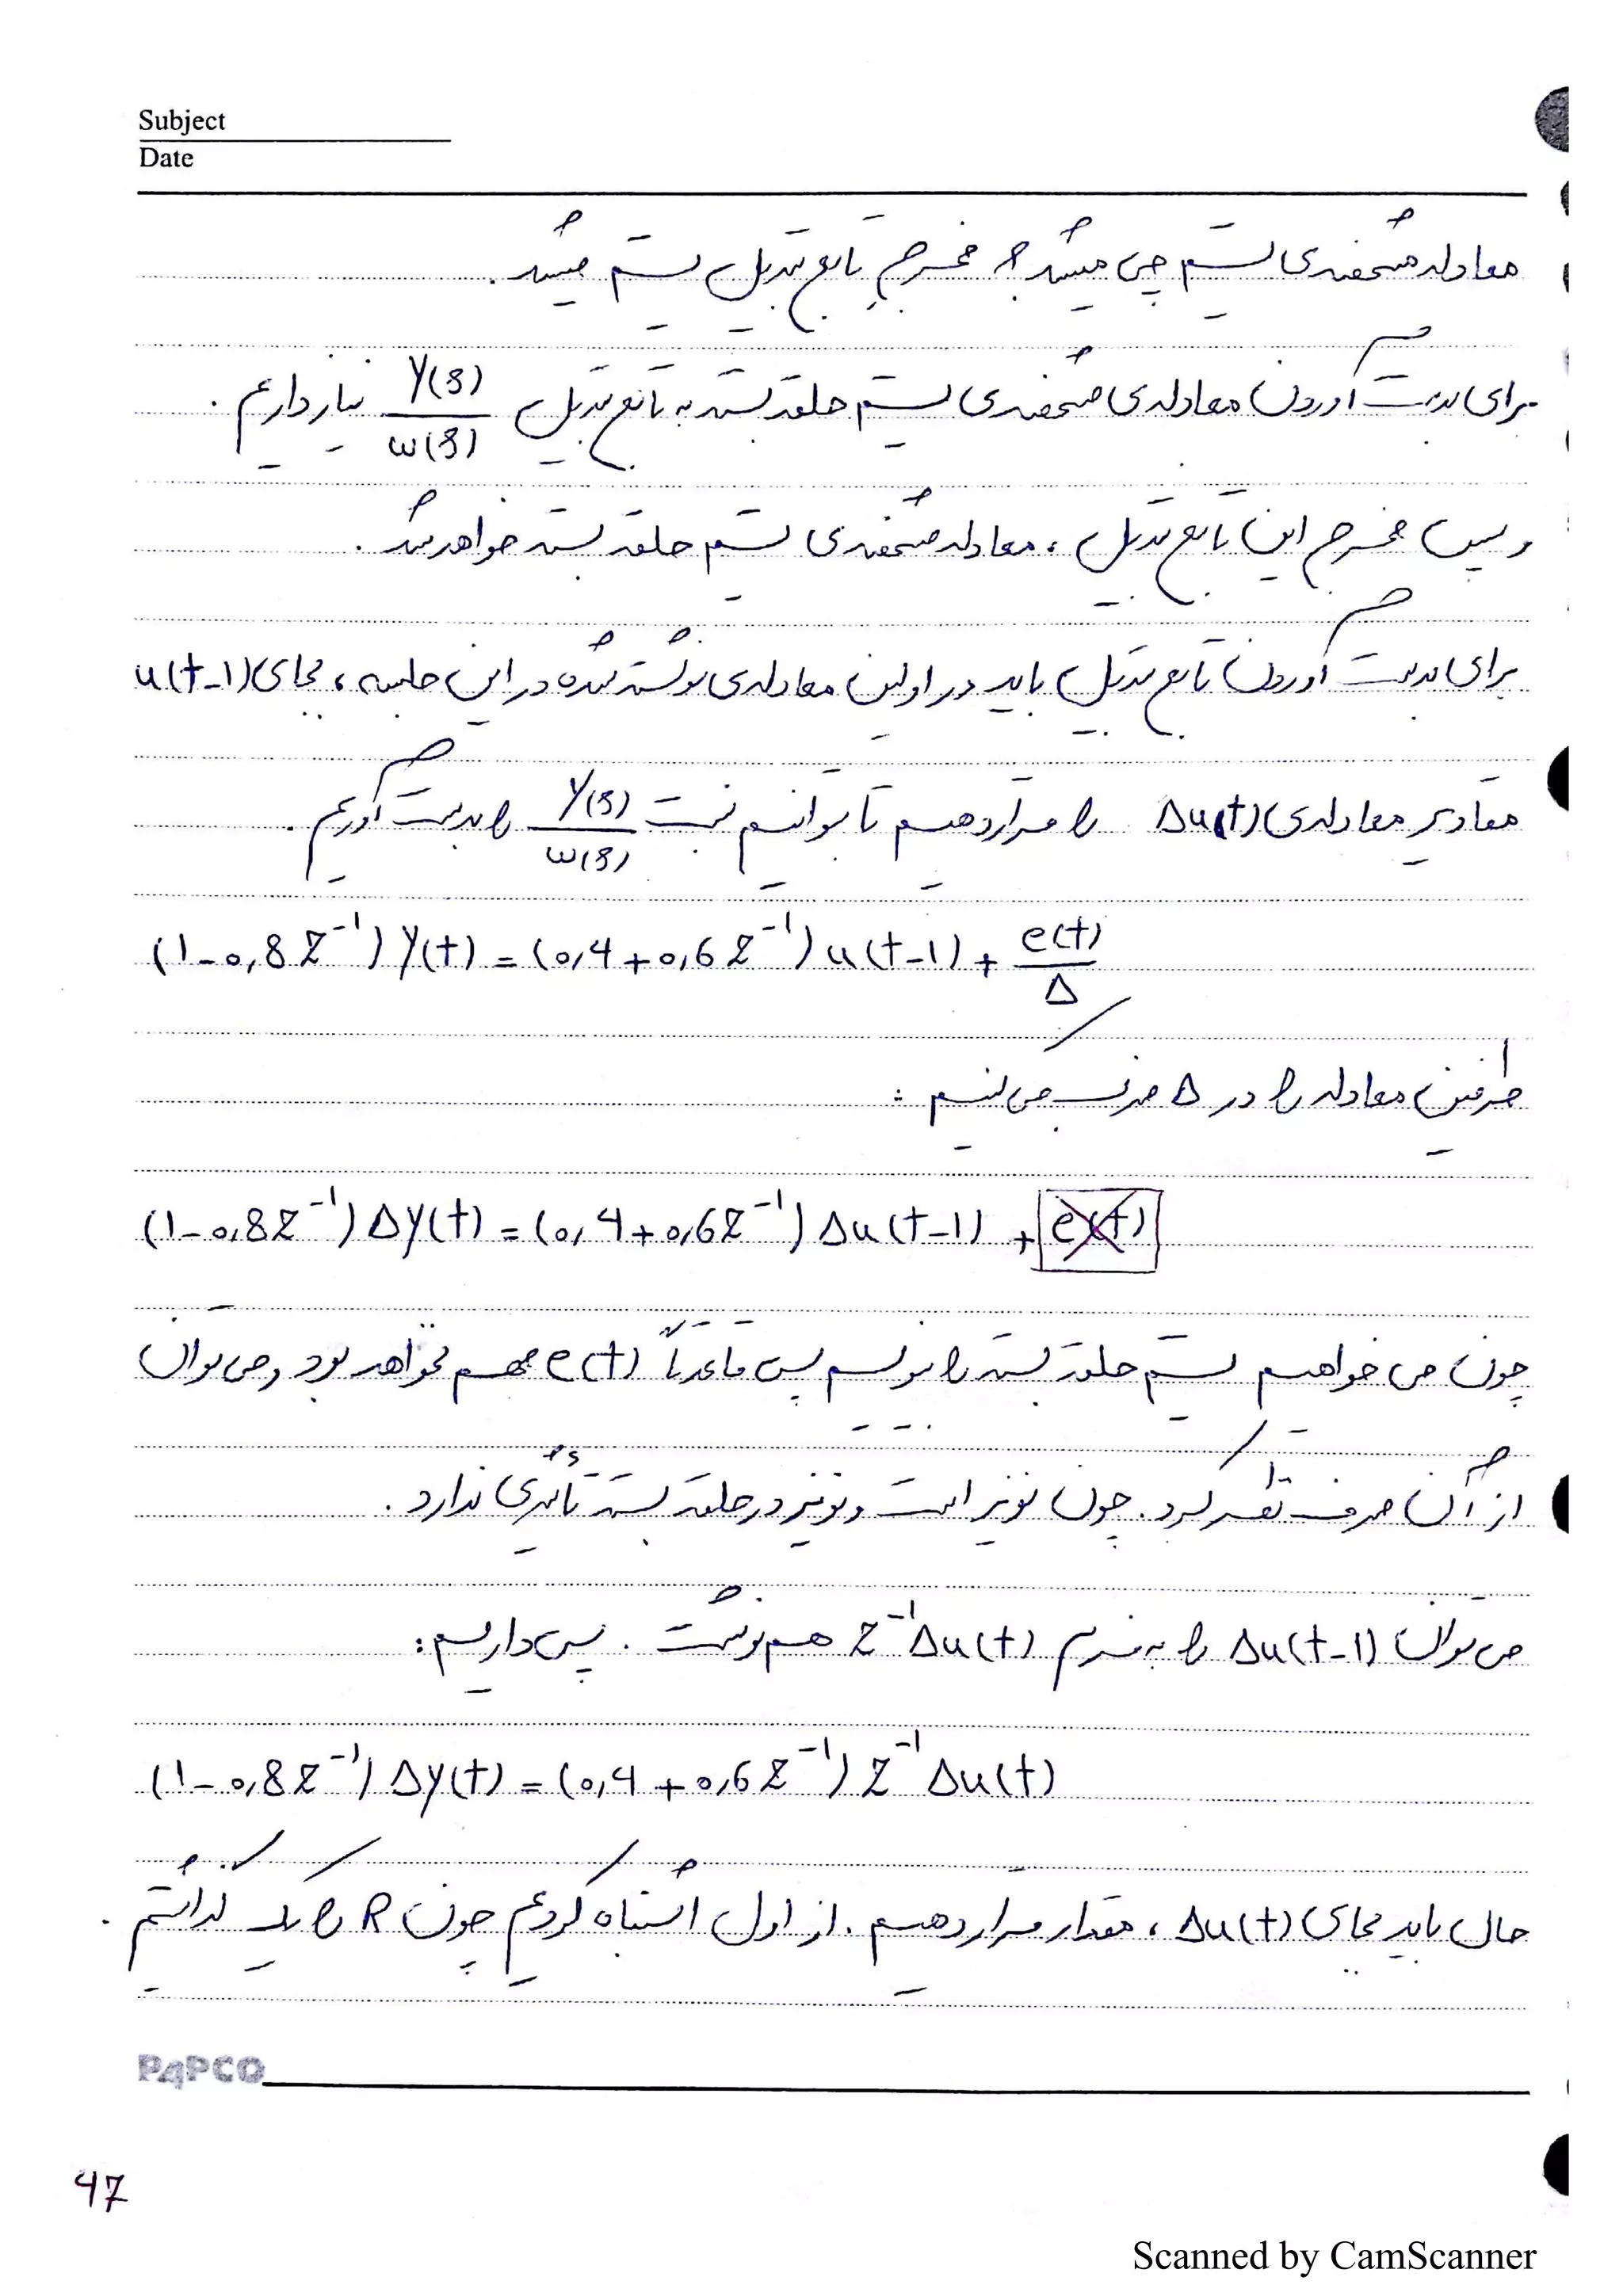 Subject
Date
معادله مشخصه‌ی سیستم چی میشد؟ مخرج تابع تبدیل سیستم میشد.
برای بدست آوردن معادله‌ی مشخصه‌ی سیستم حلقه بسته به تابع تبدیل Y(z)/w(z) نیاز داریم.
و سپس مخرج این تابع تبدیل، معادله مشخصه‌ی سیستم حلقه بسته خواهد شد.
برای بدست آوردن تابع تبدیل باید در اولین معادله‌ی نوشته شده در این جلسه، بجای u(t-1)
مقادیر معادله‌ی Δu(t) را قرار دهیم تا بتوانیم نسبت Y(z)/w(z) را بدست آوریم.
(1-0,8z⁻¹) y(t) = (0,4+0,6z⁻¹) u(t-1) + e(t)/Δ
طرفین معادله را در Δ ضرب می کنیم:
(1-0,8z⁻¹) Δy(t) = (0,4+0,6z⁻¹) Δu(t-1) + e(t)
چون می خواهیم سیستم حلقه بسته را بنویسیم پس قاعدتاً e(t) مهم نخواهد بود و می توان
از آن صرف نظر کرد. چون نویز است و نویز در حلقه بسته تأثیری ندارد.
می توان Δu(t-1) را به فرم z⁻¹Δu(t) هم نوشت. پس داریم:
(1-0,8z⁻¹) Δy(t) = (0,4+0,6z⁻¹) z⁻¹ Δu(t)
حال باید بجای Δu(t)، مقدار قرار دهیم. از اول اشتباه کردیم چون R را یک گذاشتیم.
PAPCO
47
Scanned by CamScanner